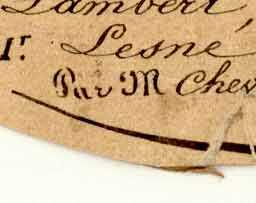 Lambert,
Mr. Lesné
Par M Chev